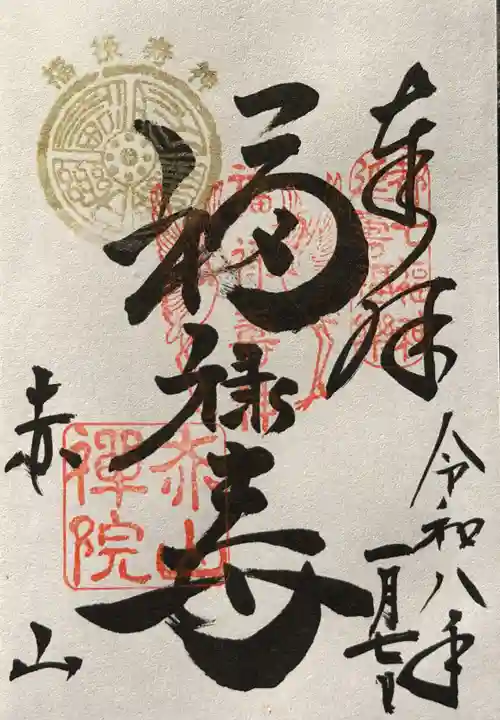 奉拝
令和八年
一月七日
福禄寿
赤山
福禄寿神
赤山
禅院